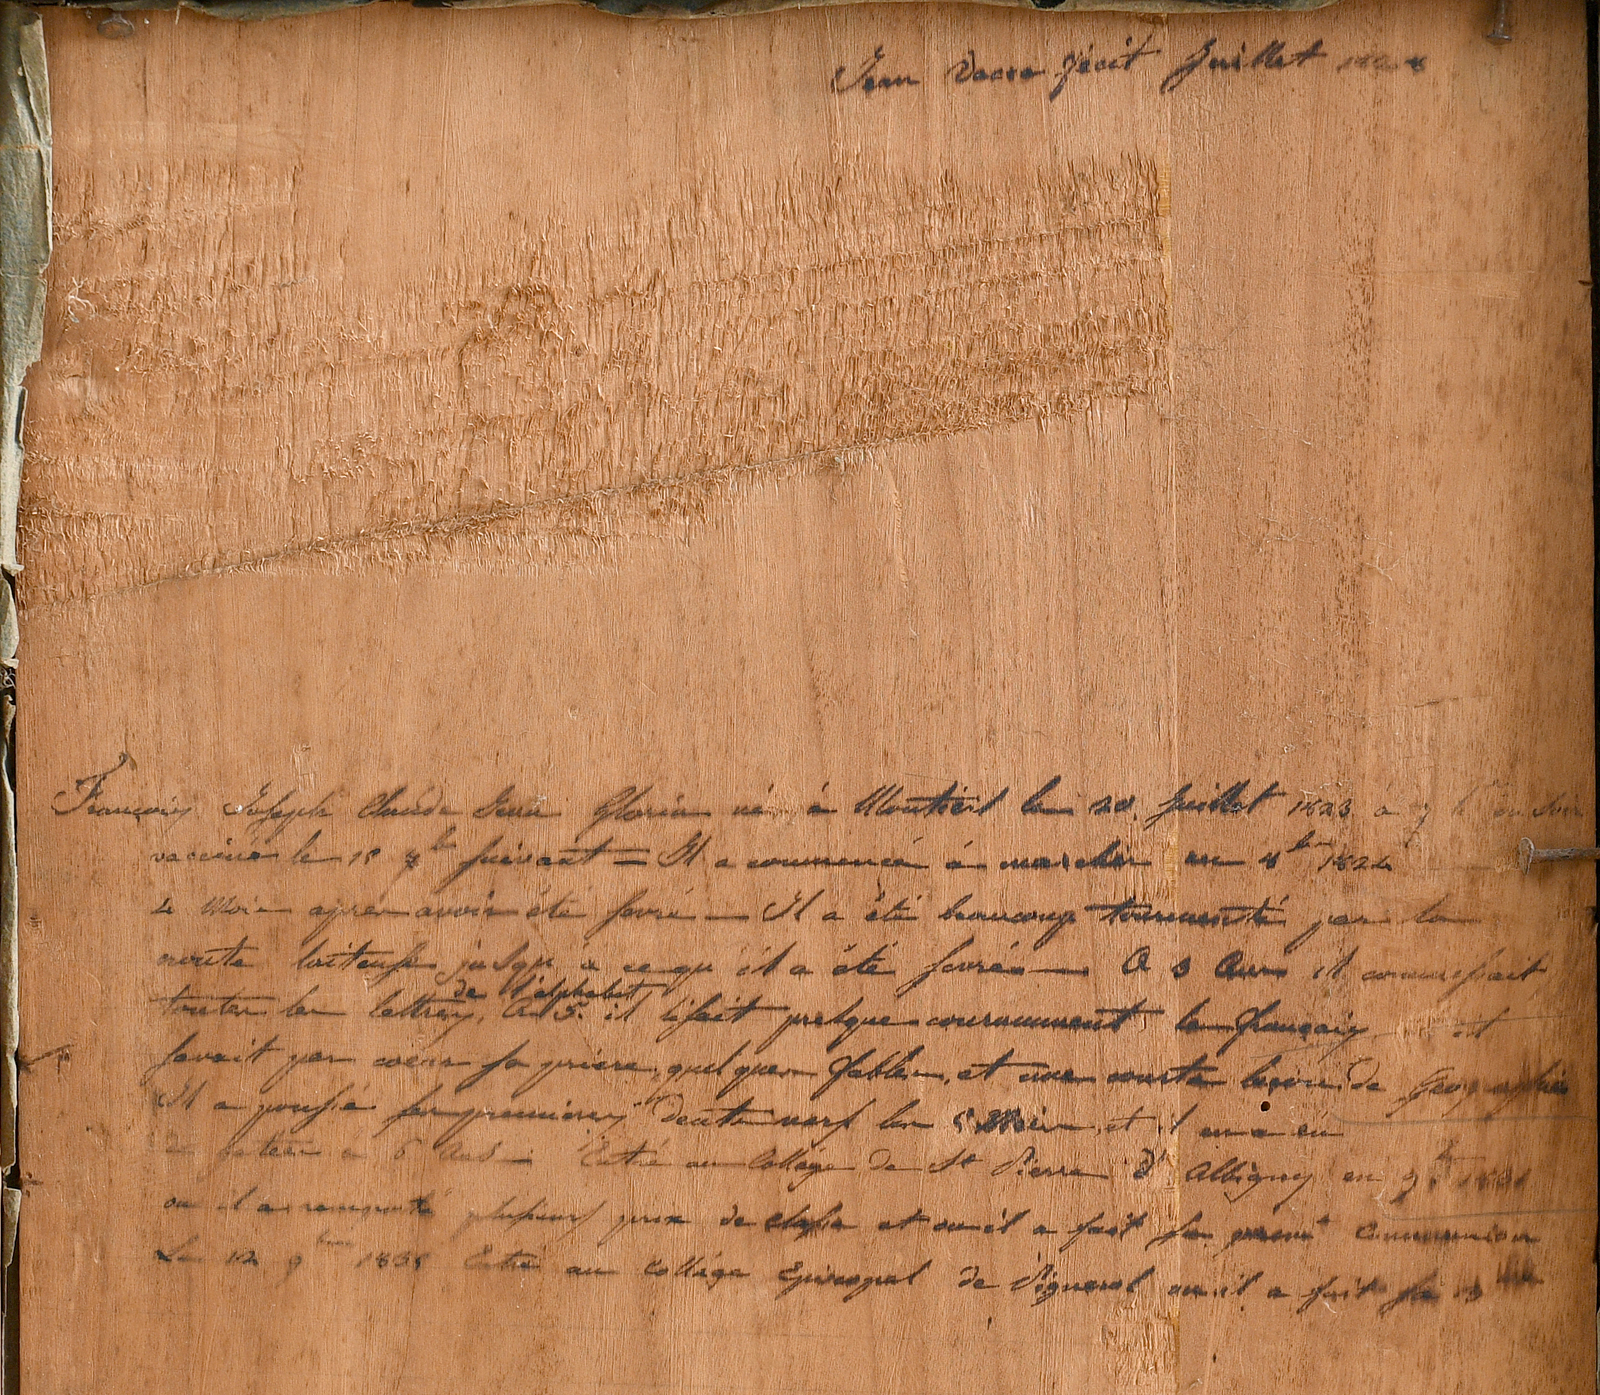 Jean fecit Juillet
François Joseph Claude Jean né à Moutiers le 20 Juillet 1823 a 7 h du soir
vacciné le 18 7bre suivant = Il a commencé à marcher en 8bre 1824
2 Mois apres avoir été sevré — Il a été beaucoup tourmenté par la
croute laiteuse jusqu'à ce qu'il a été sevré — A 3 Ans il connaissait
toutes les lettres de l'alphabet, A 5. il lisait presque couramment le français il
savait par coeur sa priere, quelques fables, et une courte leçon de Geographie
Il a poussé ses premieres dents vers les 5 Mois, et il en a eu
2 a 6 Ans — Entré au Collége de St Pierre d'Albigny en 9bre 1831
ou il a remporté plusieurs prix de classe et ou il a fait sa premre Communion
Le 12 9bre 1835 Entré au Collége Episcopal de Pignerol ou il a fait sa 3me